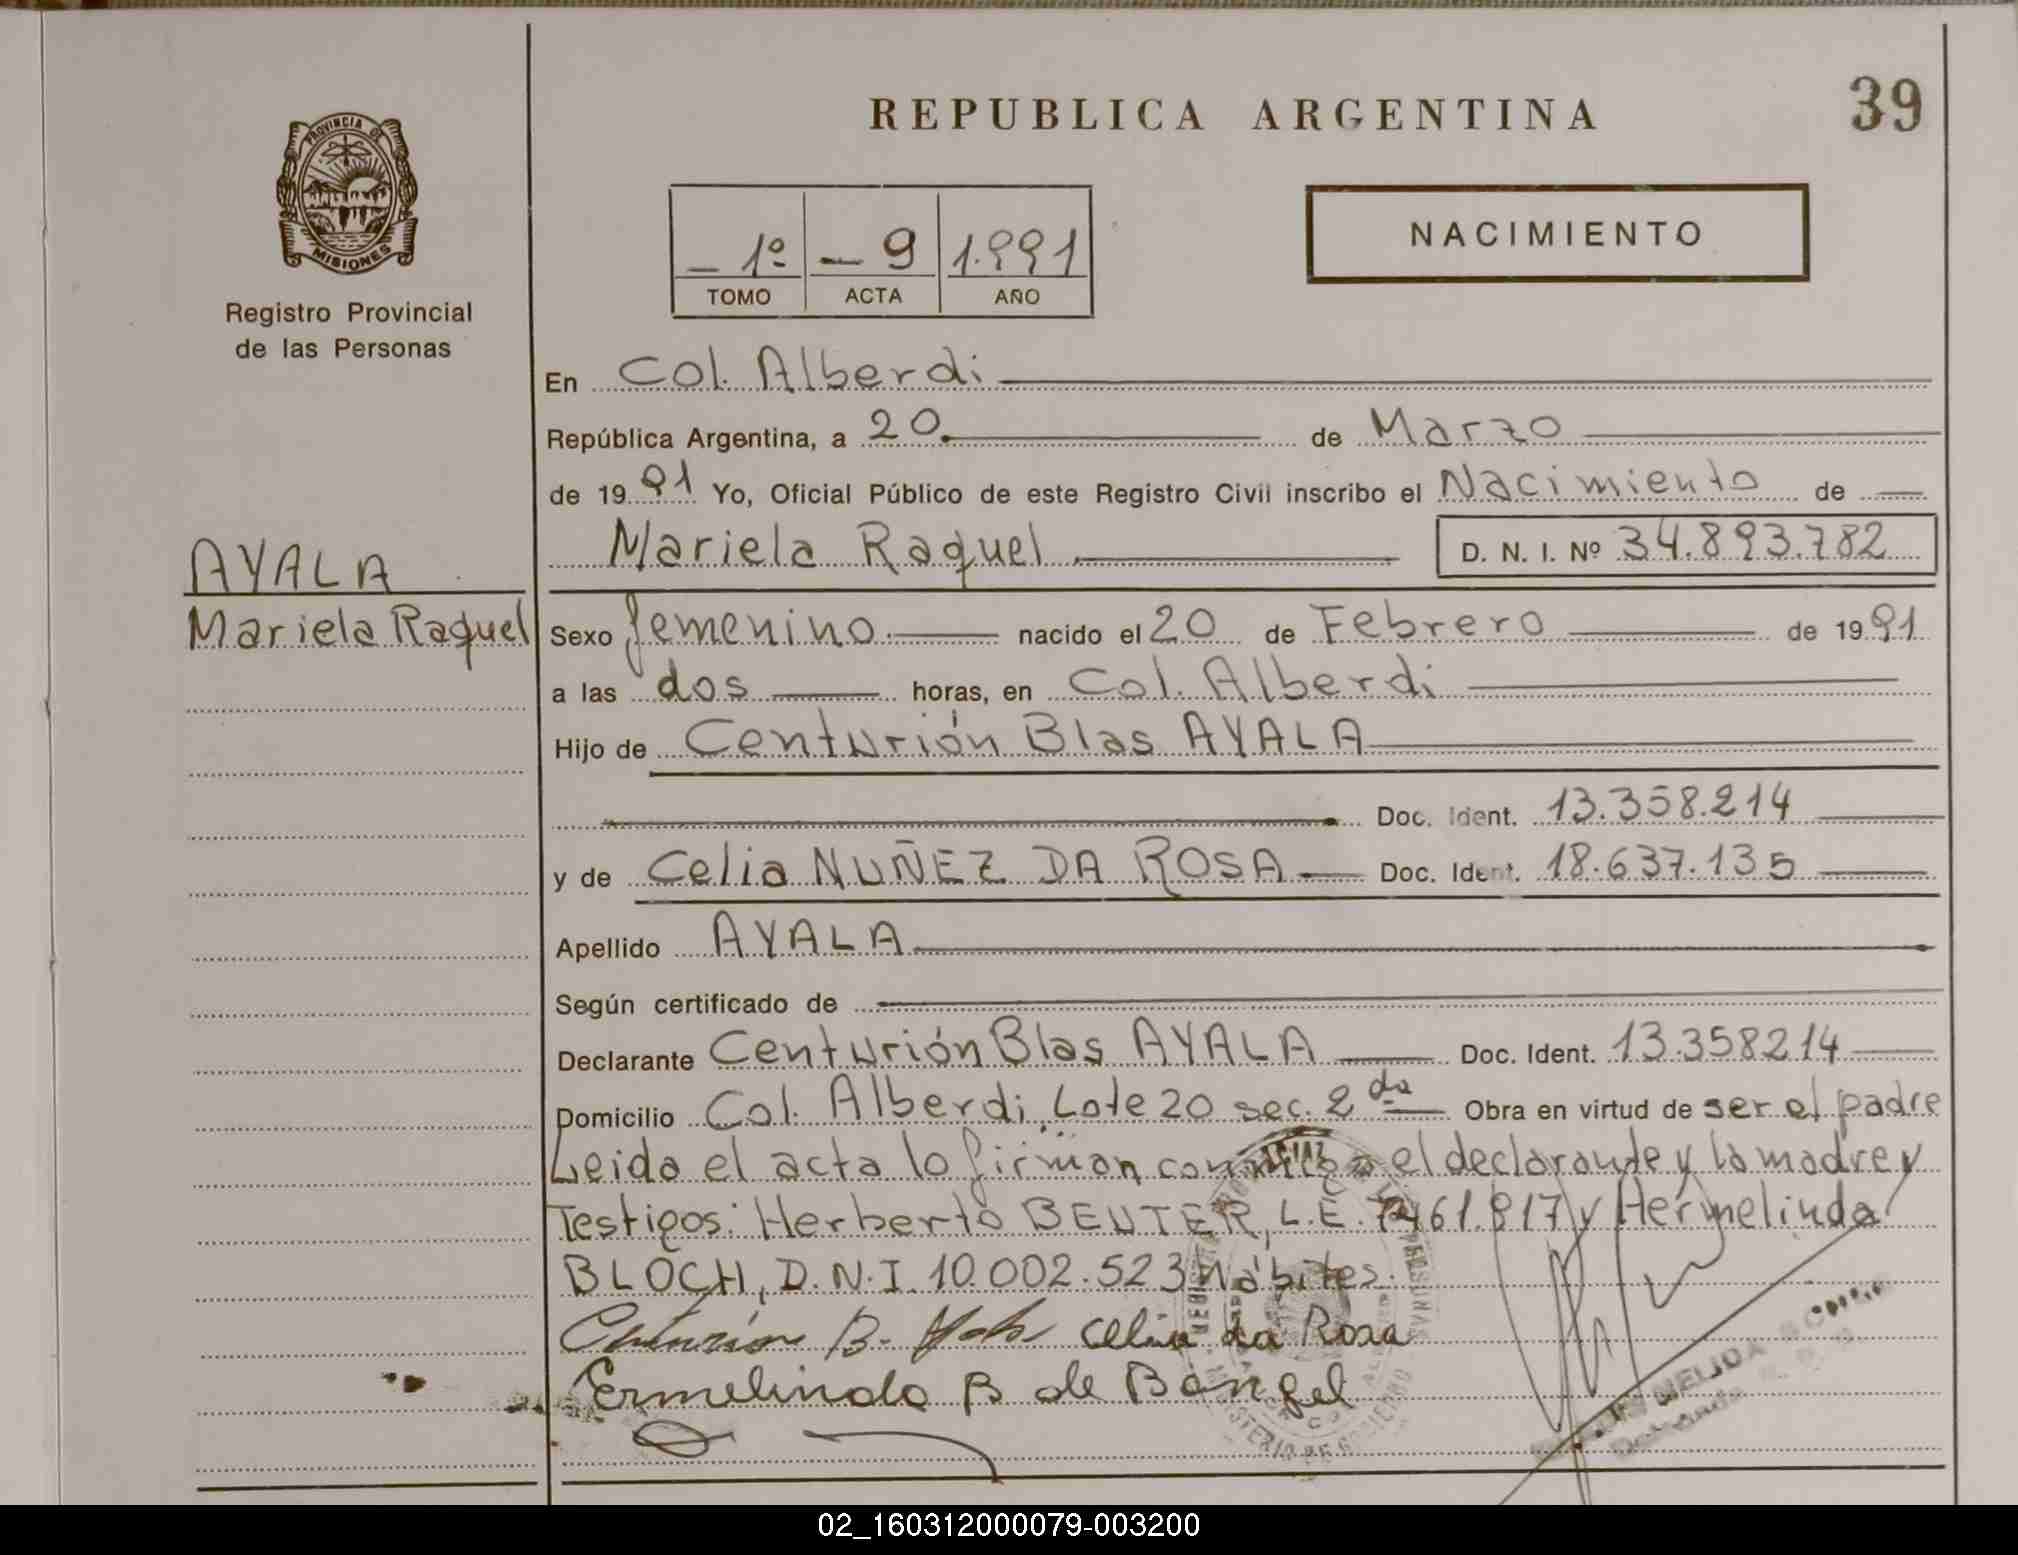 REPUBLICA ARGENTINA
39
PROVINCIA DE
MISIONES
Registro Provincial
de las Personas
1º - 9 1.991
TOMO ACTA AÑO
NACIMIENTO
En Col. Alberdi
República Argentina, a 20 de Marzo
de 1991 Yo, Oficial Público de este Registro Civil inscribo el Nacimiento de
Mariela Raquel D. N. I. Nº 34.893.782
AYALA
Mariela Raquel
Sexo femenino nacido el 20 de Febrero de 1991
a las dos horas, en Col. Alberdi
Hijo de Centurión Blas AYALA
Doc. Ident. 13.358.214
y de Celia NUÑEZ DA ROSA Doc. Ident. 18.637.135
Apellido AYALA
Según certificado de
Declarante Centurión Blas AYALA Doc. Ident. 13.358214
Domicilio Col. Alberdi, Lote 20 sec. 2da Obra en virtud de ser el padre
Leida el acta lo firman conmigo el declarante y la madre y
Testigos: Herberto BEUTER, L.E. 7461.817 y Hermelinda
BLOCH, D.N.I. 10.002.523 hábiles.
Centurión B. Celia da Rosa
Ermelinda B de Bangel
02_160312000079-003200